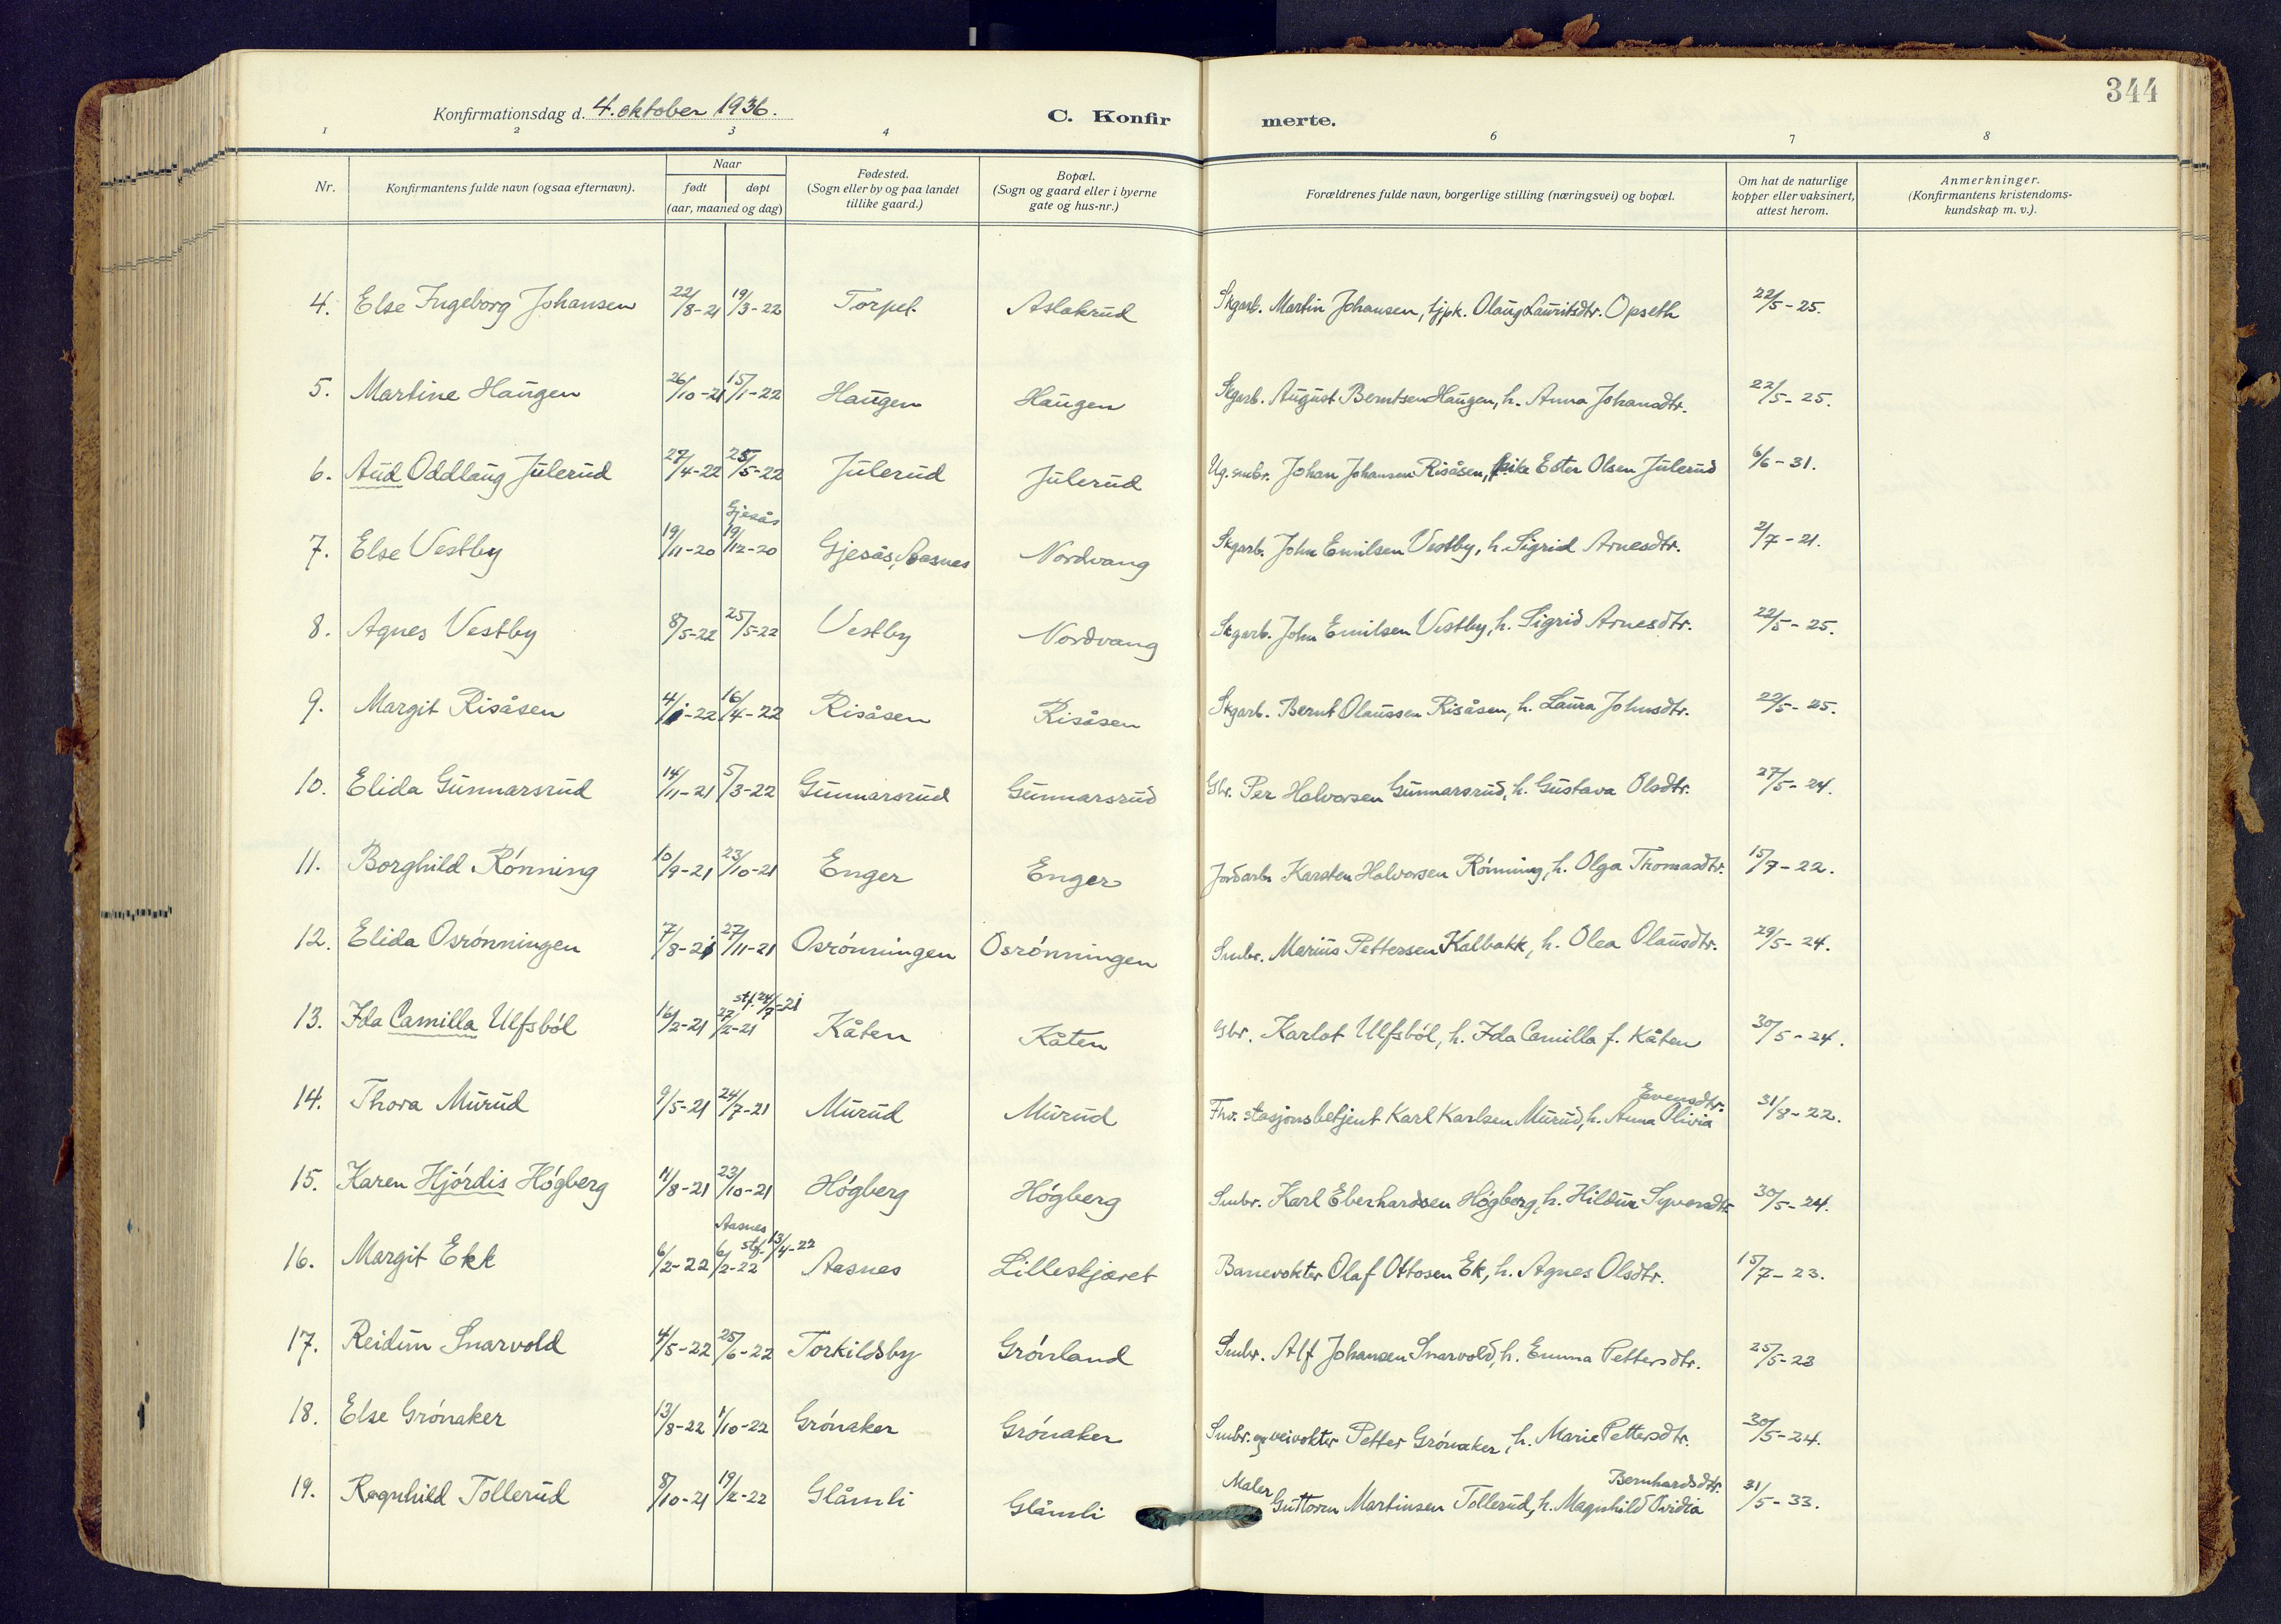 344
Konfirmationsdag d. 4. oktober 1936.
C. Konfirmerte.
1 2 3 4 6 7 8
Nr. Konfirmantens fulde navn (ogsaa efternavn). Naar født døpt (aar, maaned og dag) Fødested. (Sogn eller by og paa landet tillike gaard.) Bopæl. (Sogn og gaard eller i byerne gate og hus-nr.) Forældrenes fulde navn, borgerlige stilling (næringsvei) og bopæl. Om hat de naturlige kopper eller vaksinert, attest herom. Anmerkninger. (Konfirmantens kristendoms-kundskap m. v.).
4. Else Ingeborg Johansen 22/8-21 19/3-22 Torpet Aslakrud Skgarb. Martin Johansen, tjpk. Olaug Lauritsdtr. Opseth 22/5-25.
5. Martine Haugen 26/10-21 15/1-22 Haugen Haugen Skgarb. August Berntsen Haugen, h. Anna Johansdtr. 22/5-25.
6. Aud Oddlaug Julerud 27/4-22 25/5-22 Julerud Julerud Ug. smbr. Johan Johansen Risåsen, pike Ester Olsen Julerud 6/6-31.
7. Else Vestby 19/11-20 Gjesås 19/12-20 Gjesås, Aasnes Nordvang Skgarb. John Emilsen Vestby, h. Sigrid Arnesdtr. 2/7-21.
8. Agnes Vestby 8/5-22 25/5-22 Vestby Nordvang Skgarb. John Emilsen Vestby, h. Sigrid Arnesdtr. 22/5-25.
9. Margit Risåsen 4/1-22 16/4-22 Risåsen Risåsen Skgarb. Bernt Olaussen Risåsen, h. Laura Johnsdtr. 22/5-25.
10. Elida Gunnarsrud 14/11-21 5/3-22 Gunnarsrud Gunnarsrud Gbr. Per Halvorsen Gunnarsrud, h. Gustava Olsdtr. 27/5-24.
11. Borghild Rónning 10/9-21 23/10-21 Enger Enger Jordarb. Karsten Halvorsen Rónning, h. Olga Thomasdtr. 15/7-22.
12. Elida Osrónningen 7/8-21 27/11-21 Osrónningen Osrónningen Smbr. Marius Pettersen Kalbakk, h. Olea Olausdtr. 29/5-24.
13. Ida Camilla Ulfsból 16/2-21 27/2-21 stf. 24/7-21 Kåten Kåten Gbr. Karlot Ulfsból, h. Ida Camilla f. Kåten 30/5-24.
14. Thora Murud 9/5-21 24/7-21 Murud Murud Fhv. stasjonsbetjent Karl Karlsen Murud, h. Anna Olivia Evensdtr. 31/8-22.
15. Karen Hjórdis Hógberg 11/8-21 23/10-21 Hógberg Hógberg Smbr. Karl Eberhardsen Hógberg, h. Hildur Syversdtr. 30/5-24.
16. Margit Ekk 6/2-22 Aasnes 6/2-22 stf. 13/4-22 Aasnes Lilleskjæret Banevokter Olaf Ottosen Ek, h. Agnes Olsdtr. 15/7-23.
17. Reidun Snarvold 4/5-22 25/6-22 Torkildsby Grónland Smbr. Alf Johansen Snarvold, h. Emma Pettersdtr. 25/5-23
18. Else Grónaker 13/8-22 1/10-22 Grónaker Grónaker Smbr. og veivokter Petter Grónaker, h. Marie Pettersdtr. 30/5-24.
19. Ragnhild Tollerud 8/10-21 19/2-22 Glåmli Glåmli Maler Guttorm Martinsen Tollerud, h. Magnhild Ovidia Bernhardsdtr. 31/5-33.